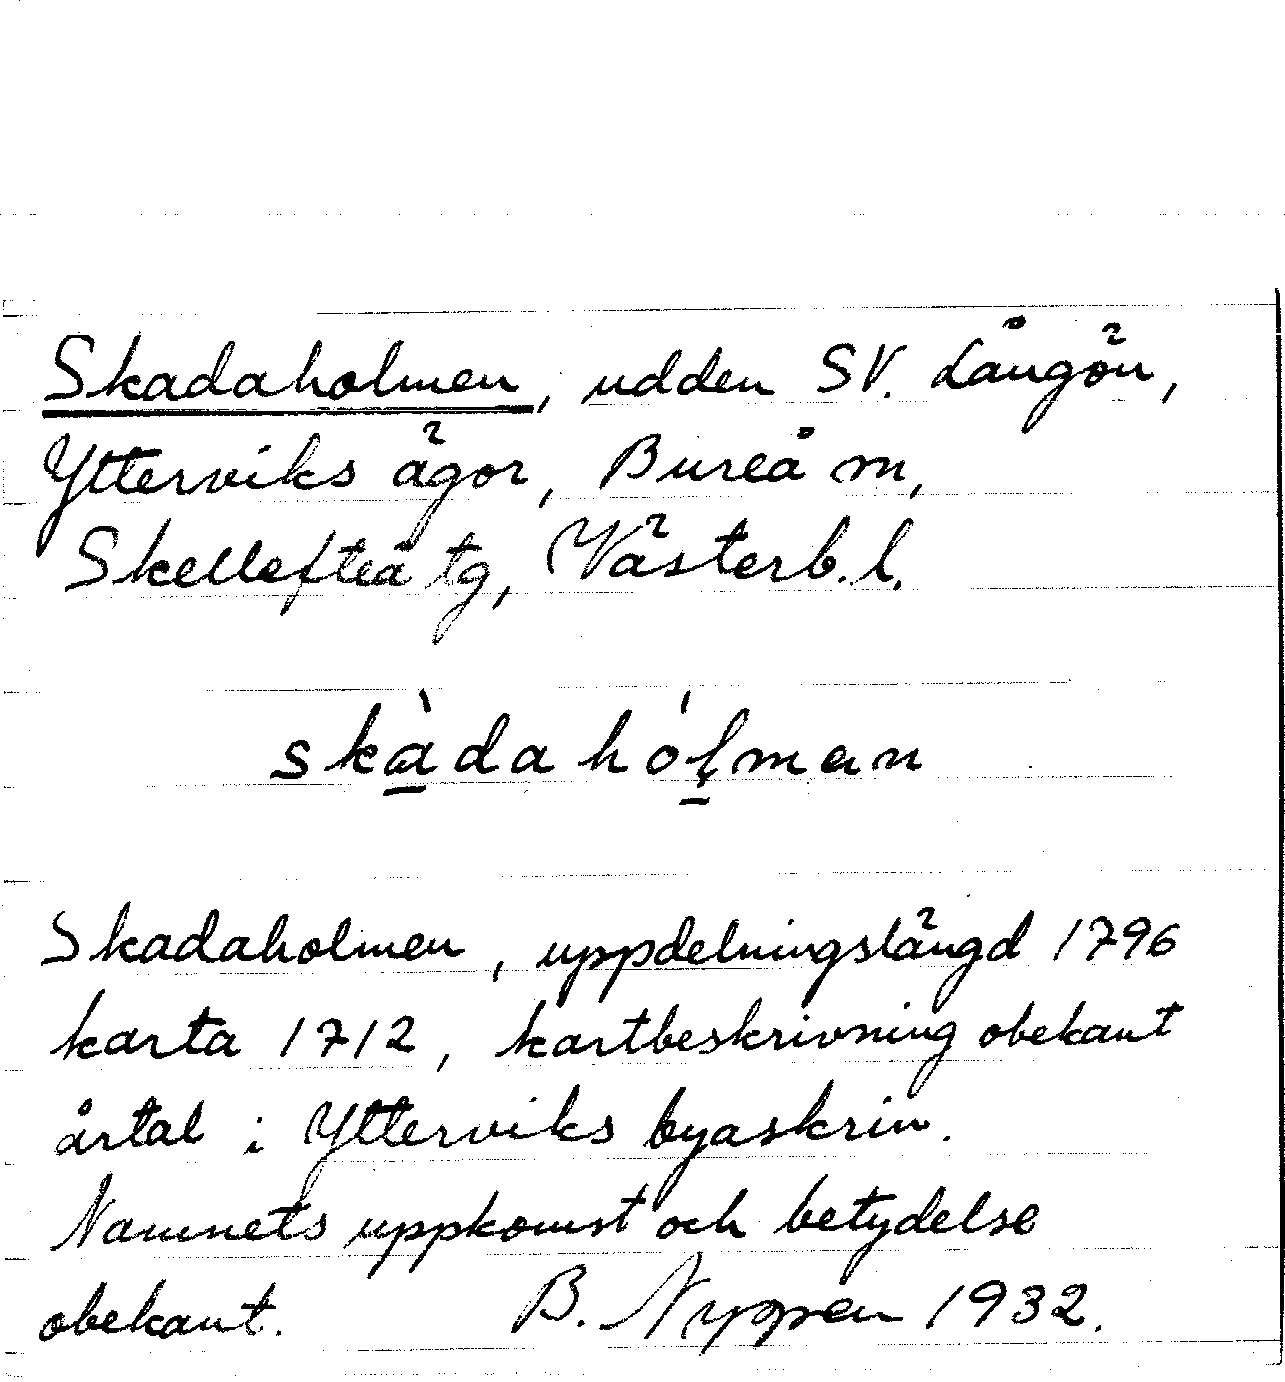 Skadaholmen, udden SV. Långön,
Ytterviks ägor, Bureå m,
Skellefteå tg, Västerb. l.
skàdahóḷman
Skadaholmen, uppdelningslängd 1796
karta 1712, kartbeskrivning obekant
årtal i Ytterviks byaskrin.
Namnets uppkomst och betydelse
obekant. B. Nygren 1932.